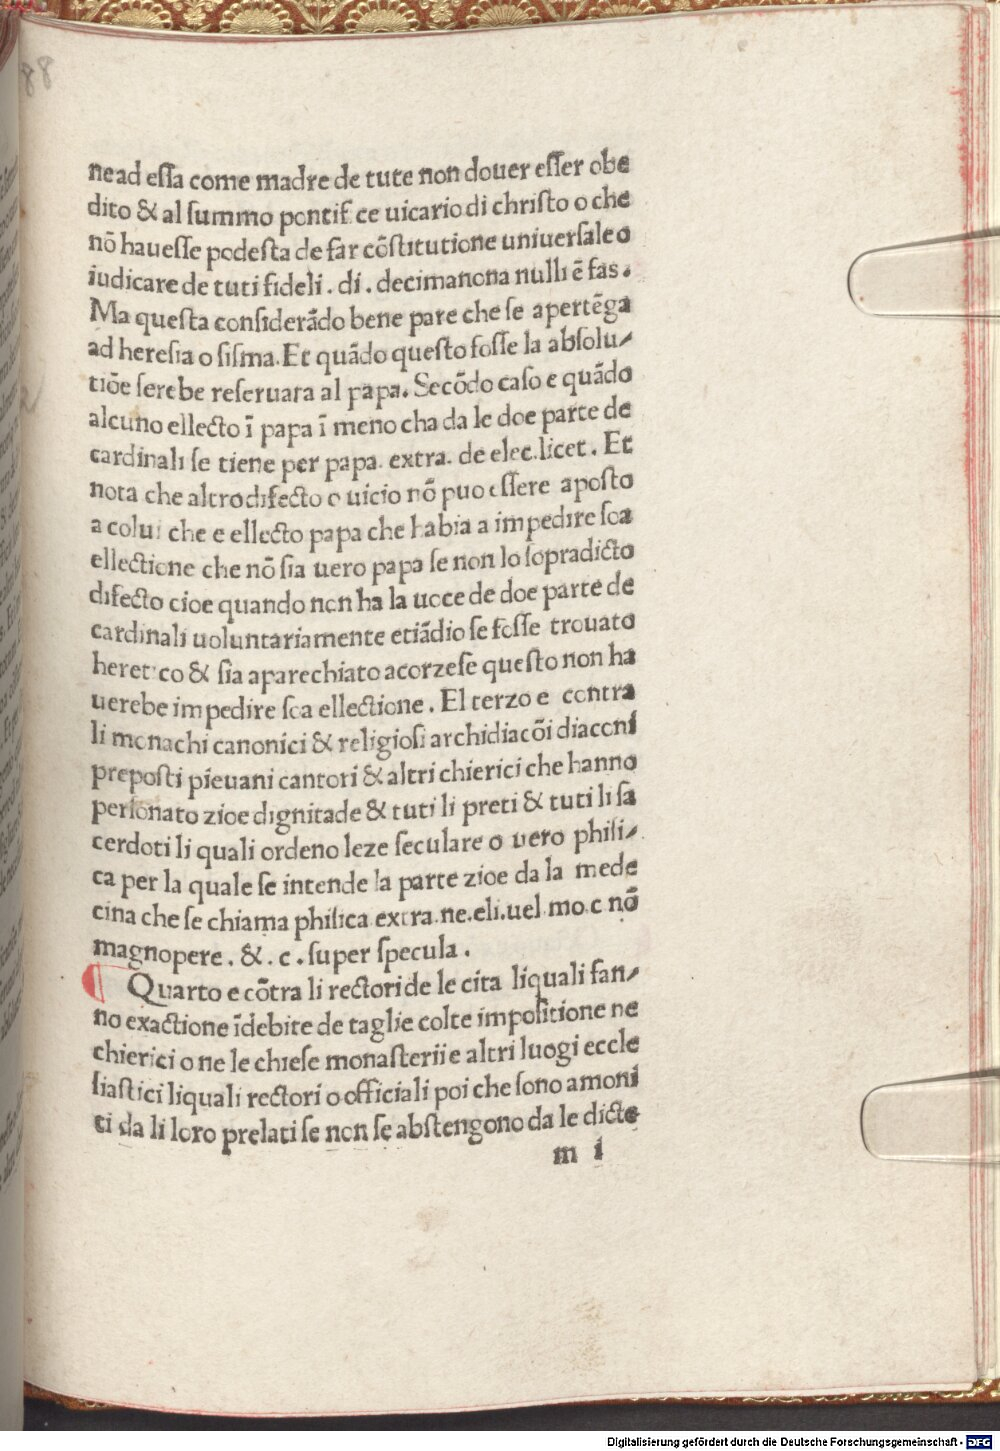 88
ne ad essa come madre de tute non douer esser obe
dito & al summo pontif ce uicario di christo o che
nō hauesse podesta de far cōstitutione uniuersale o
iudicare de tuti fideli . di . decimanona nulli ē fas .
Ma questa considerādo bene pare che se apertēga
ad heresia o sisma. Et quādo questo fosse la absolu-
tiōe serebe reseruara al papa. Secōdo caso e quādo
alcuno ellecto ī papa ī meno cha da le doe parte de
cardinali se tiene per papa. extra. de elec. licet . Et
nota che altro difecto o uicio nō puo essere aposto
a colui che e ellecto papa che habia a impedire soa
ellectione che nō sia uero papa se non lo sopradicto
difecto cioe quando non ha la uoce de doe parte de
cardinali uoluntariamente etiādio se fosse trouato
heretico & sia aparechiato acorzese questo non ha
uerebe impedire soa ellectione . El terzo e contra
li monachi canonici & religiosi archidiacōi diaconi
preposti pieuani cantori & altri chierici che hanno
personato zioe dignitade & tuti li preti & tuti li sa
cerdoti li quali ordeno leze seculare o vero phisi-
ca per la quale se intende la parte zioe da la mede
cina che se chiama phisica extra. ne. eli. uel. mo. c nō
magnopere . & . c . super specula .
Quarto e cōtra li rectori de le cita liquali fan-
no exactione īdebite de taglie colte impositione ne
chierici o ne le chiese monasterii e altri luogi eccle
siastici liquali rectori o officiali poi che sono amoni
ti da li loro prelati se non se abstengono da le dicte
m i
Digitalisierung gefördert durch die Deutsche Forschungsgemeinschaft - DFG